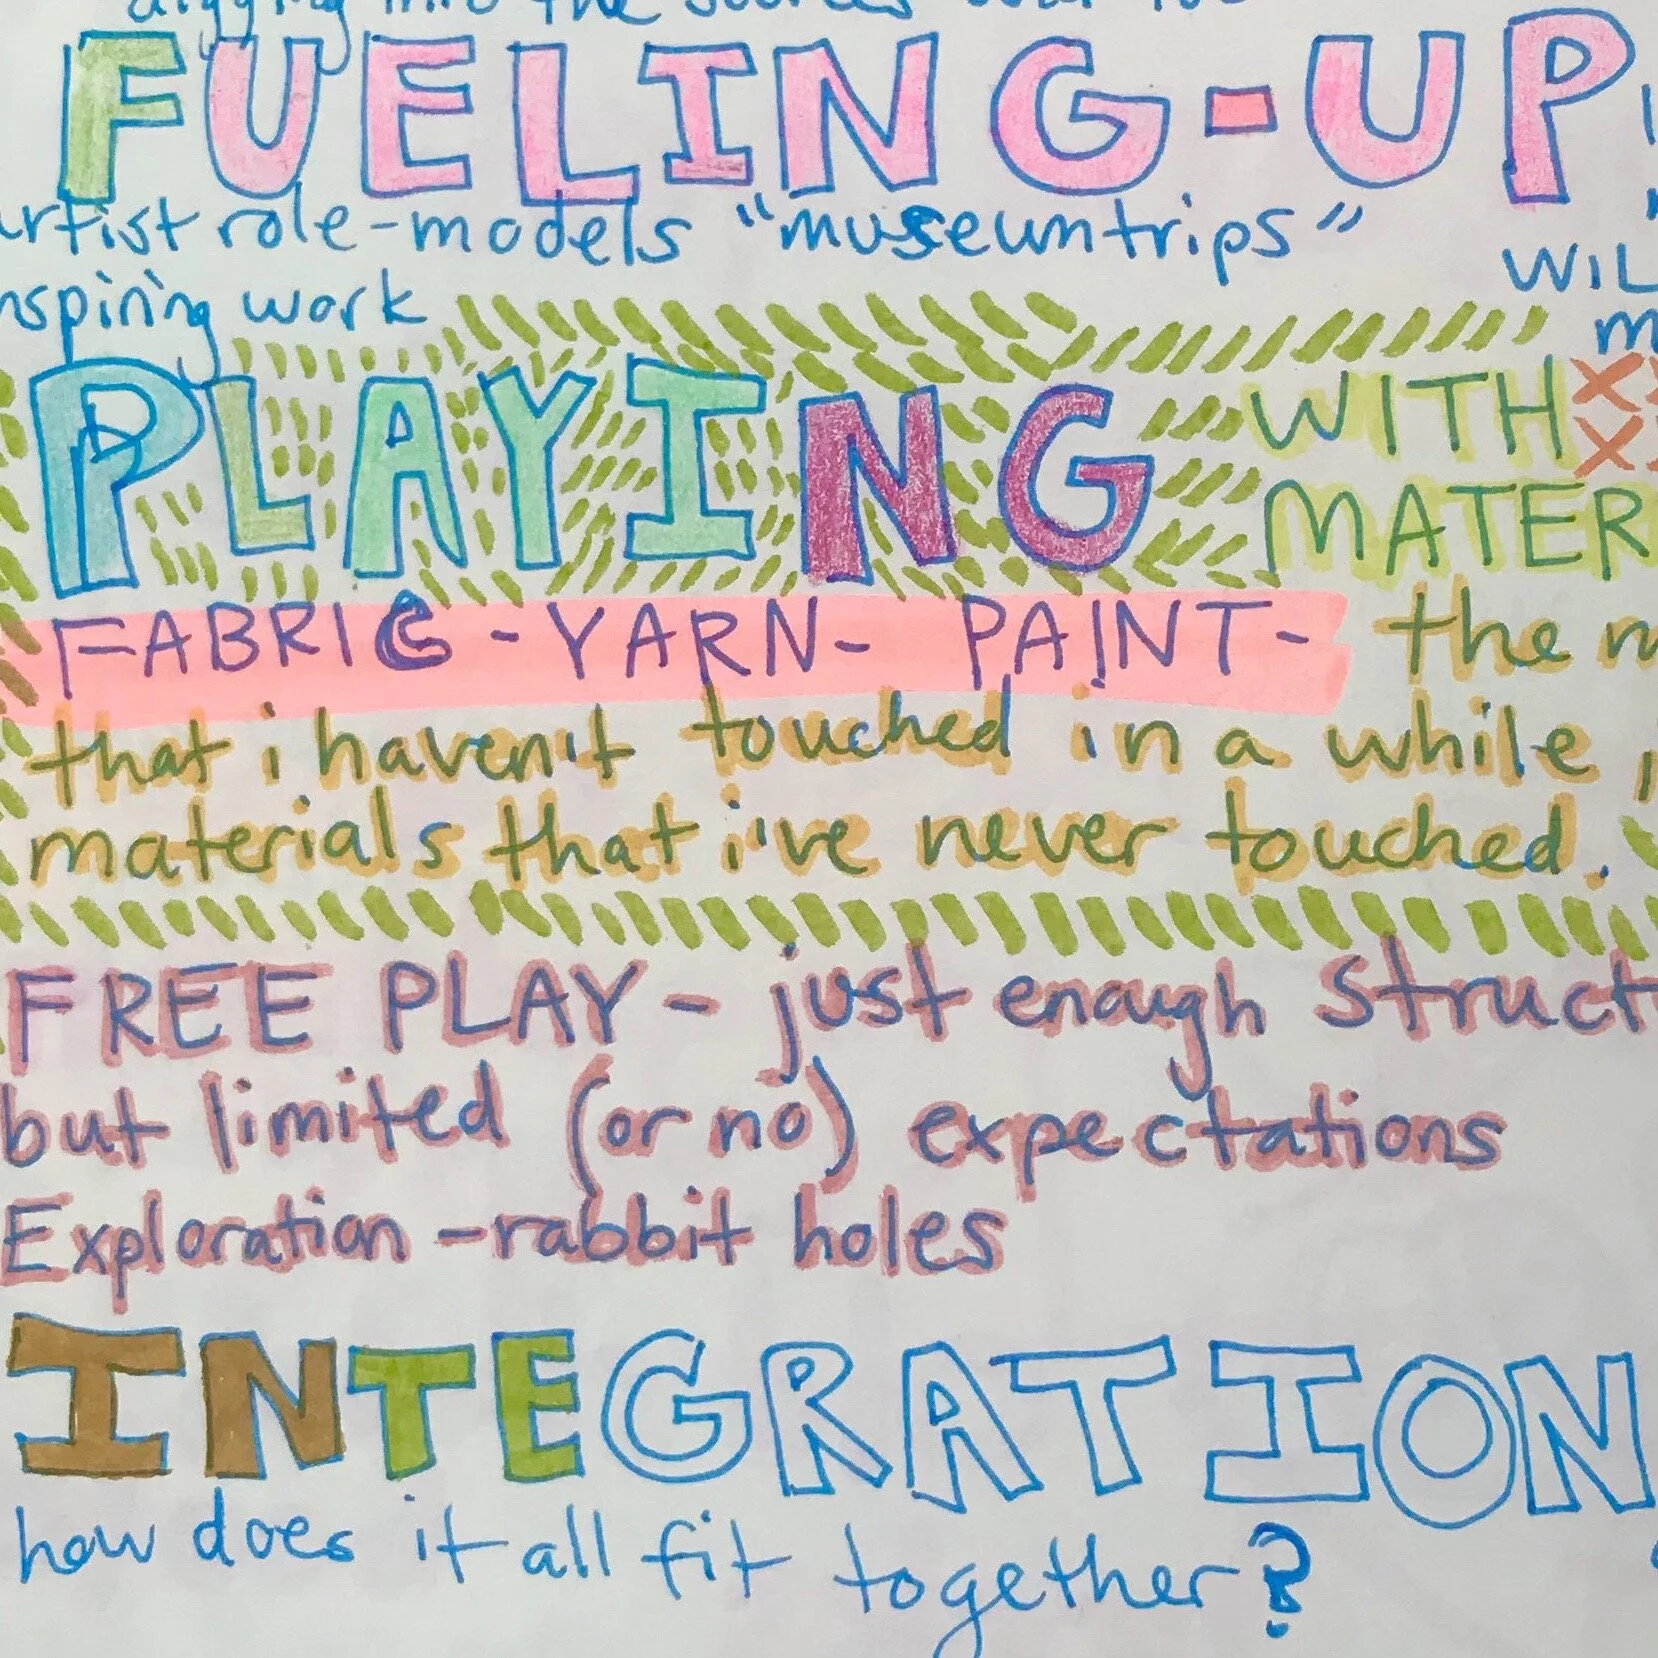 digging into the sources
FUELING-UP
artist role-models "museum trips"
inspiring work
WIL
PLAYING WITH
MATER
FABRIC - YARN - PAINT - the m
that i haven't touched in a while,
materials that i've never touched.
FREE PLAY - just enough struct
but limited (or no) expectations
Exploration - rabbit holes
INTEGRATION
how does it all fit together?